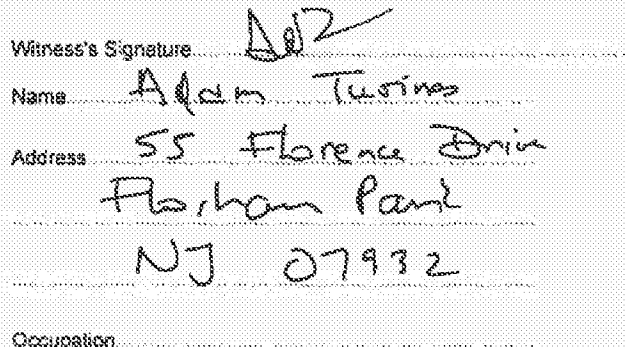 Witness's Signature
Name Adam Turinas
Address 55 Florence Drive
Florham Park
NJ 07932
Occupation